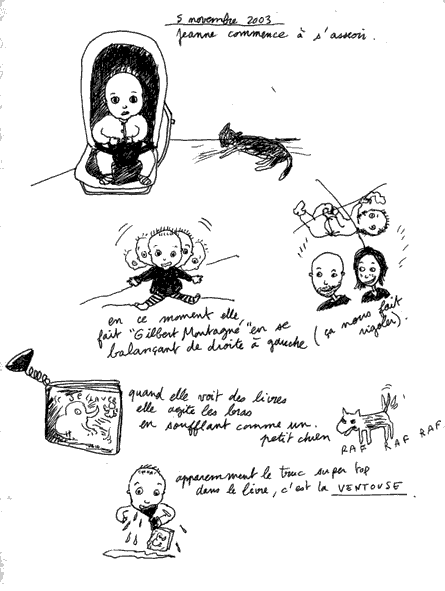 5 novembre 2003
Jeanne commence à s'asseoir.
en ce moment elle,
fait "Gilbert Montagné" en se
balançant de droite à gauche (ça nous fait
rigoler).
quand elle voit des livres
elle agite les bras
en soufflant comme un
petit chien
RAF RAF RAF RAF
apparemment le truc super top
dans le livre, c'est la VENTOUSE